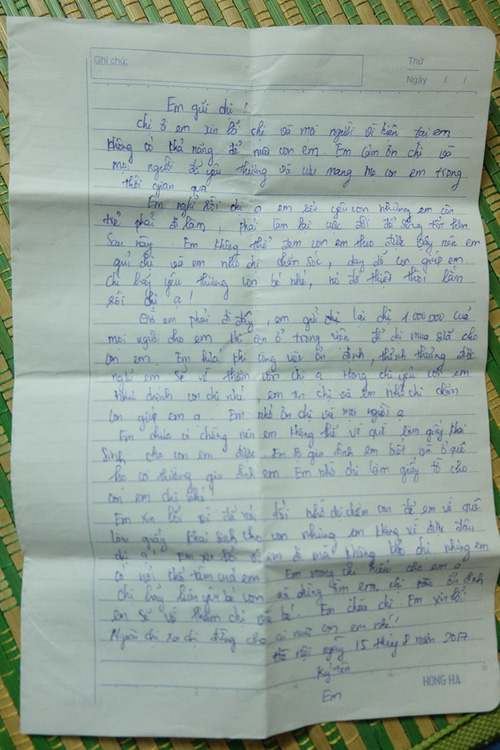 Ghi chú:
Thứ
Ngày / /
Em gửi chị!
Chị ơi em xin lỗi chị và mọi người vì hiện tại em
không có khả năng để nuôi con em. Em cảm ơn chị và
mọi người đã yêu thương và cưu mang mẹ con em trong
thời gian qua
Em nghĩ rồi chị ạ em rất yêu con nhưng em còn
trẻ phải đi làm, phải làm lại cuộc đời để sống tốt hơn
Sau này. Em không thể đem con em theo được vậy nên em
gửi chị và em nhờ chị chăm sóc, dạy dỗ con giúp em.
Chị hãy yêu thương con bé nhé, nó đã thiệt thòi lắm
rồi chị ạ!
Giờ em phải đi đây, em gửi chị lại chị 1.000.000 của
mọi người cho em khi em ở trong viện để chị mua sữa cho
con em. Em khi công việc ổn định, thỉnh thoảng được
nghỉ em sẽ về thăm con chị ạ. Mong chị yêu con em
như chính con chị nhé, em tin chị và em nhờ chị chăm
con giúp em ạ. Em nhớ ơn chị và mọi người ạ
Em chưa có chồng nên em không thể về quê làm giấy khai
Sinh cho con em được. gia đình em biết và ở quê
họ cười gia đình em. Em nhờ chị làm giấy tờ cho
con em chị nhé!
Em xin lỗi vì đã nói dối nhờ chị chăm con để em về quê
làm giấy khai sinh cho con nhưng em không về được đâu
chị ạ! Em xin lỗi vì em đi mà không báo chị nhưng em
có nỗi khổ tâm của em. Em mong chị hiểu cho em ạ
chị hãy con và đừng tìm em, chị nhé ổn định
em sẽ về thăm chị và bé. Em chào chị Em xin lỗi.
Ngoài chị ra chị đừng cho ai nuôi con em nhé!
Hà Nội ngày 15 tháng 8 năm 2017
Ký tên
Em
HONG HA